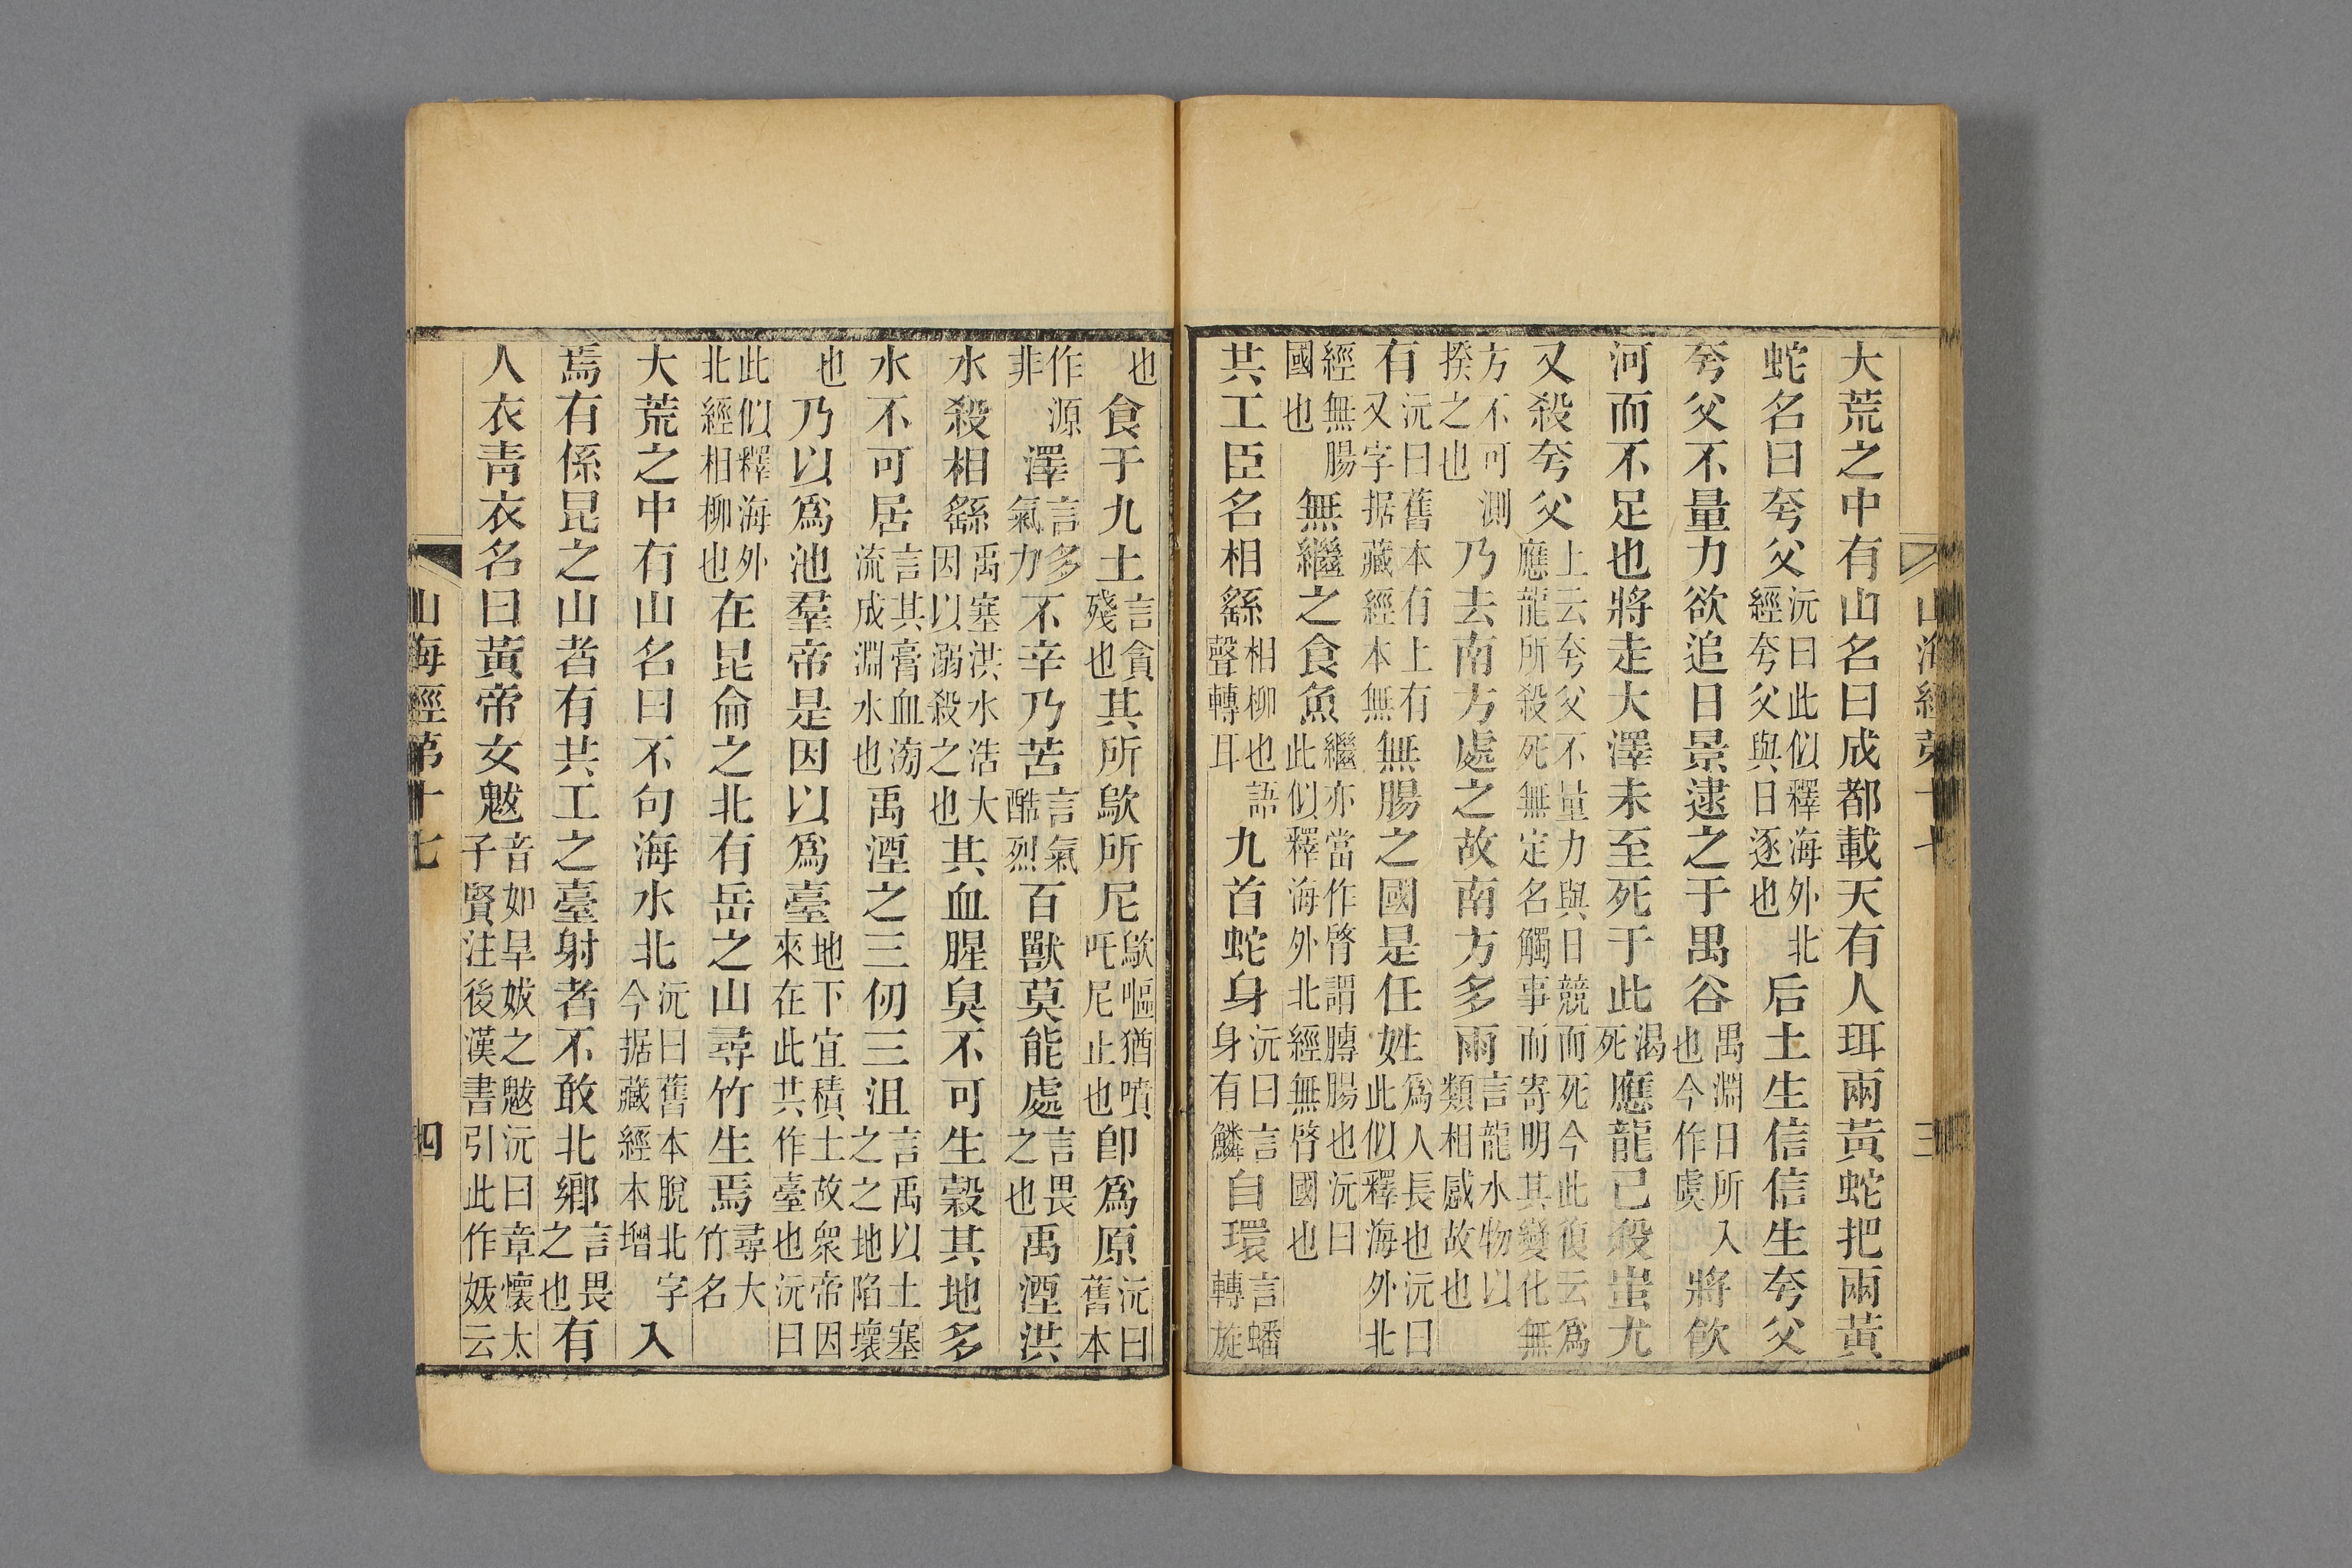 山海經第十七
三
大荒之中有山名曰成都載天有人珥兩黃蛇把兩黃
蛇名曰夸父沅曰此似釋海外北經夸父與日逐也后土生信信生夸父
夸父不量力欲追日景逮之于禺谷禺淵日所入也今作虞將飲
河而不足也將走大澤未至死于此渴死應龍已殺蚩尤
又殺夸父上云夸父不量力與日競而死今此復云爲應龍所殺死無定名觸事而寄明其變化無
方不可測揆之也乃去南方處之故南方多雨言龍水物以類相感故也
有沅曰舊本有上有又字据藏經本無無腸之國是任姓爲人長也沅曰此似釋海外北
經無腸國也無繼之食魚繼亦當作䏿謂膞腸也沅曰此似釋海外北經無䏿國也
共工臣名相繇相柳也語聲轉耳九首蛇身沅曰言身有鱗自環言蟠轉旋
也食于九土言貪殘也其所歍所尼歍嘔猶噴吒尼止也卽爲原沅曰舊本
作源非澤言多氣力不辛乃苦言氣酷烈百獸莫能處言畏之也禹湮洪
水殺相繇禹塞洪水浩大因以溺殺之也其血腥臭不可生榖其地多
水不可居言其膏血滂流成淵水也禹湮之三仞三沮言禹以土塞之之地陷壞
也乃以爲池羣帝是因以爲臺地下宜積土故衆帝因來在此共作臺也沅曰
此似釋海外北經相柳也在昆侖之北有岳之山尋竹生焉尋大竹名
大荒之中有山名曰不句海水北沅曰舊本脫北字今据藏經本增入
焉有係昆之山者有共工之臺射者不敢北鄉言畏之也有
人衣青衣名曰黃帝女魃音如旱妭之魃沅曰章懷太子賢注後漢書引此作妭云
山海經第十七
四